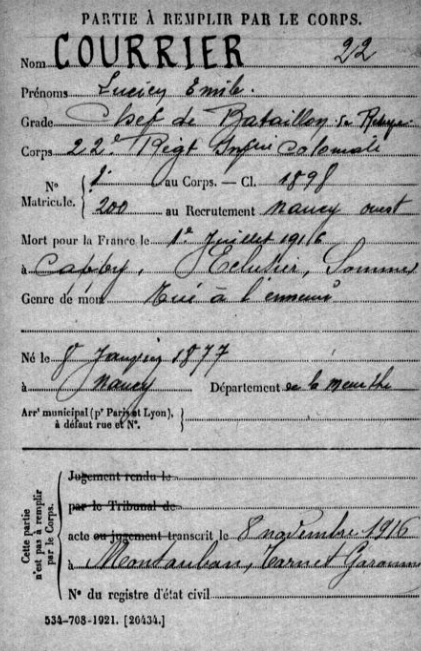 PARTIE À REMPLIR PAR LE CORPS.
Nom COURRIER 22
Prénoms Lucien Emile.
Grade Chef de Bataillon
Corps 22e Régt Infrie Coloniale
N° Matricule. { 2. au Corps. — Cl. 1898
200 au Recrutement Nancy ouest
Mort pour la France le 1er Juillet 1916
à Cappy, Eclusier, Somme
Genre de mort Tué à l'ennemi
Né le 8 Janvier 1877
à Nancy Département de la Meurthe
Arrt municipal (pr Paris et Lyon), }
à défaut rue et N°.
Cette partie n'est pas à remplir par le Corps.
Jugement rendu le
par le Tribunal de
acte ou jugement transcrit le 8 novembre 1916
à Montauban, Tarn et Garonne
N° du registre d'état civil
534-708-1921. [20434.]